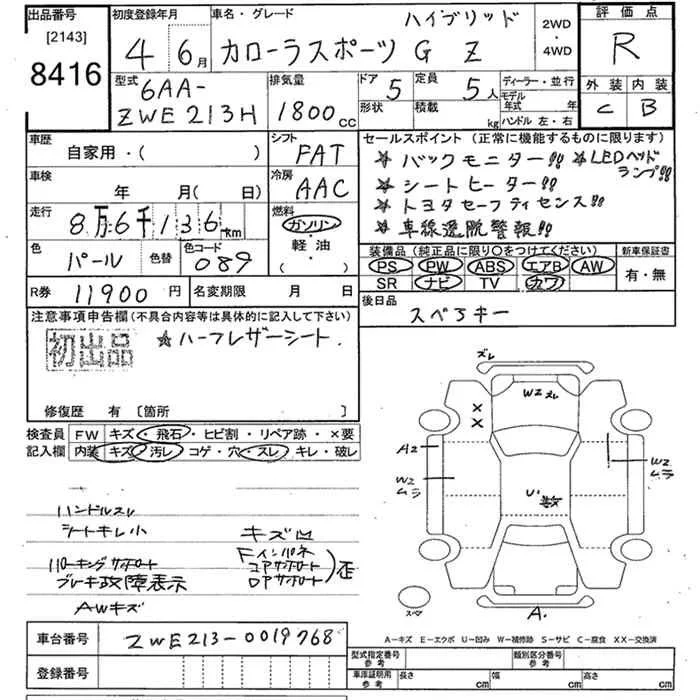 出品番号
[2143]
8416
初度登録年月
4 6月
車名・グレード
ハイブリッド
カローラスポーツ G Z
2WD
・
4WD
評価点
R
外装 内装
C B
型式
6AA-
ZWE213H
排気量
1800cc
ドア 5
形状
定員 5人
積載 kg
ディーラー・並行
モデル年式 年
ハンドル 左・右
車歴
自家用・( )
シフト
FAT
車検
年 月( 日)
冷房
AAC
走行
8万6千136km
燃料
ガソリン・
軽油・
( )
色
パール
色替
色コード
089
R券 11900円
名変期限 月 日
セールスポイント (正常に機能するものに限ります)
☆バックモニター!! ☆LEDヘッドランプ!!
☆シートヒーター!!
☆トヨタセーフティセンス!!
☆車線逸脱警報!!
装備品 (純正品に限り○をつけてください)
PS PW ABS エアB AW
SR ナビ TV カワ
新車保証書
有・無
後日品
スペアキー
注意事項申告欄(不具合内容等は具体的に記入して下さい)
初出品
☆ハーフレザーシート.
修復歴 有 〔箇所 〕
検査員記入欄
FW キズ・飛石・ヒビ割・リペア跡・×要
内装 キズ・汚レ・コゲ・穴・スレ・キレ・破レ
ハンドルスレ
シートキレ小
パーキングサポート
ブレーキ故障表示
AWキズ
キズ凹
Fインパネ
コアサポート
歪
ズレ
W2 ズレ
×
×
A2
W2
ムラ
W2
ムラ
U'
スペア
A.
A-キズ E-エクボ U-凹み W-補修跡 S-サビ C-腐食 XX-交換済
車台番号 ZWE213-0019768
登録番号
型式指定番号
参考
類別区分番号
参考
車庫証明用
参考
長さ cm
幅 cm
高さ cm